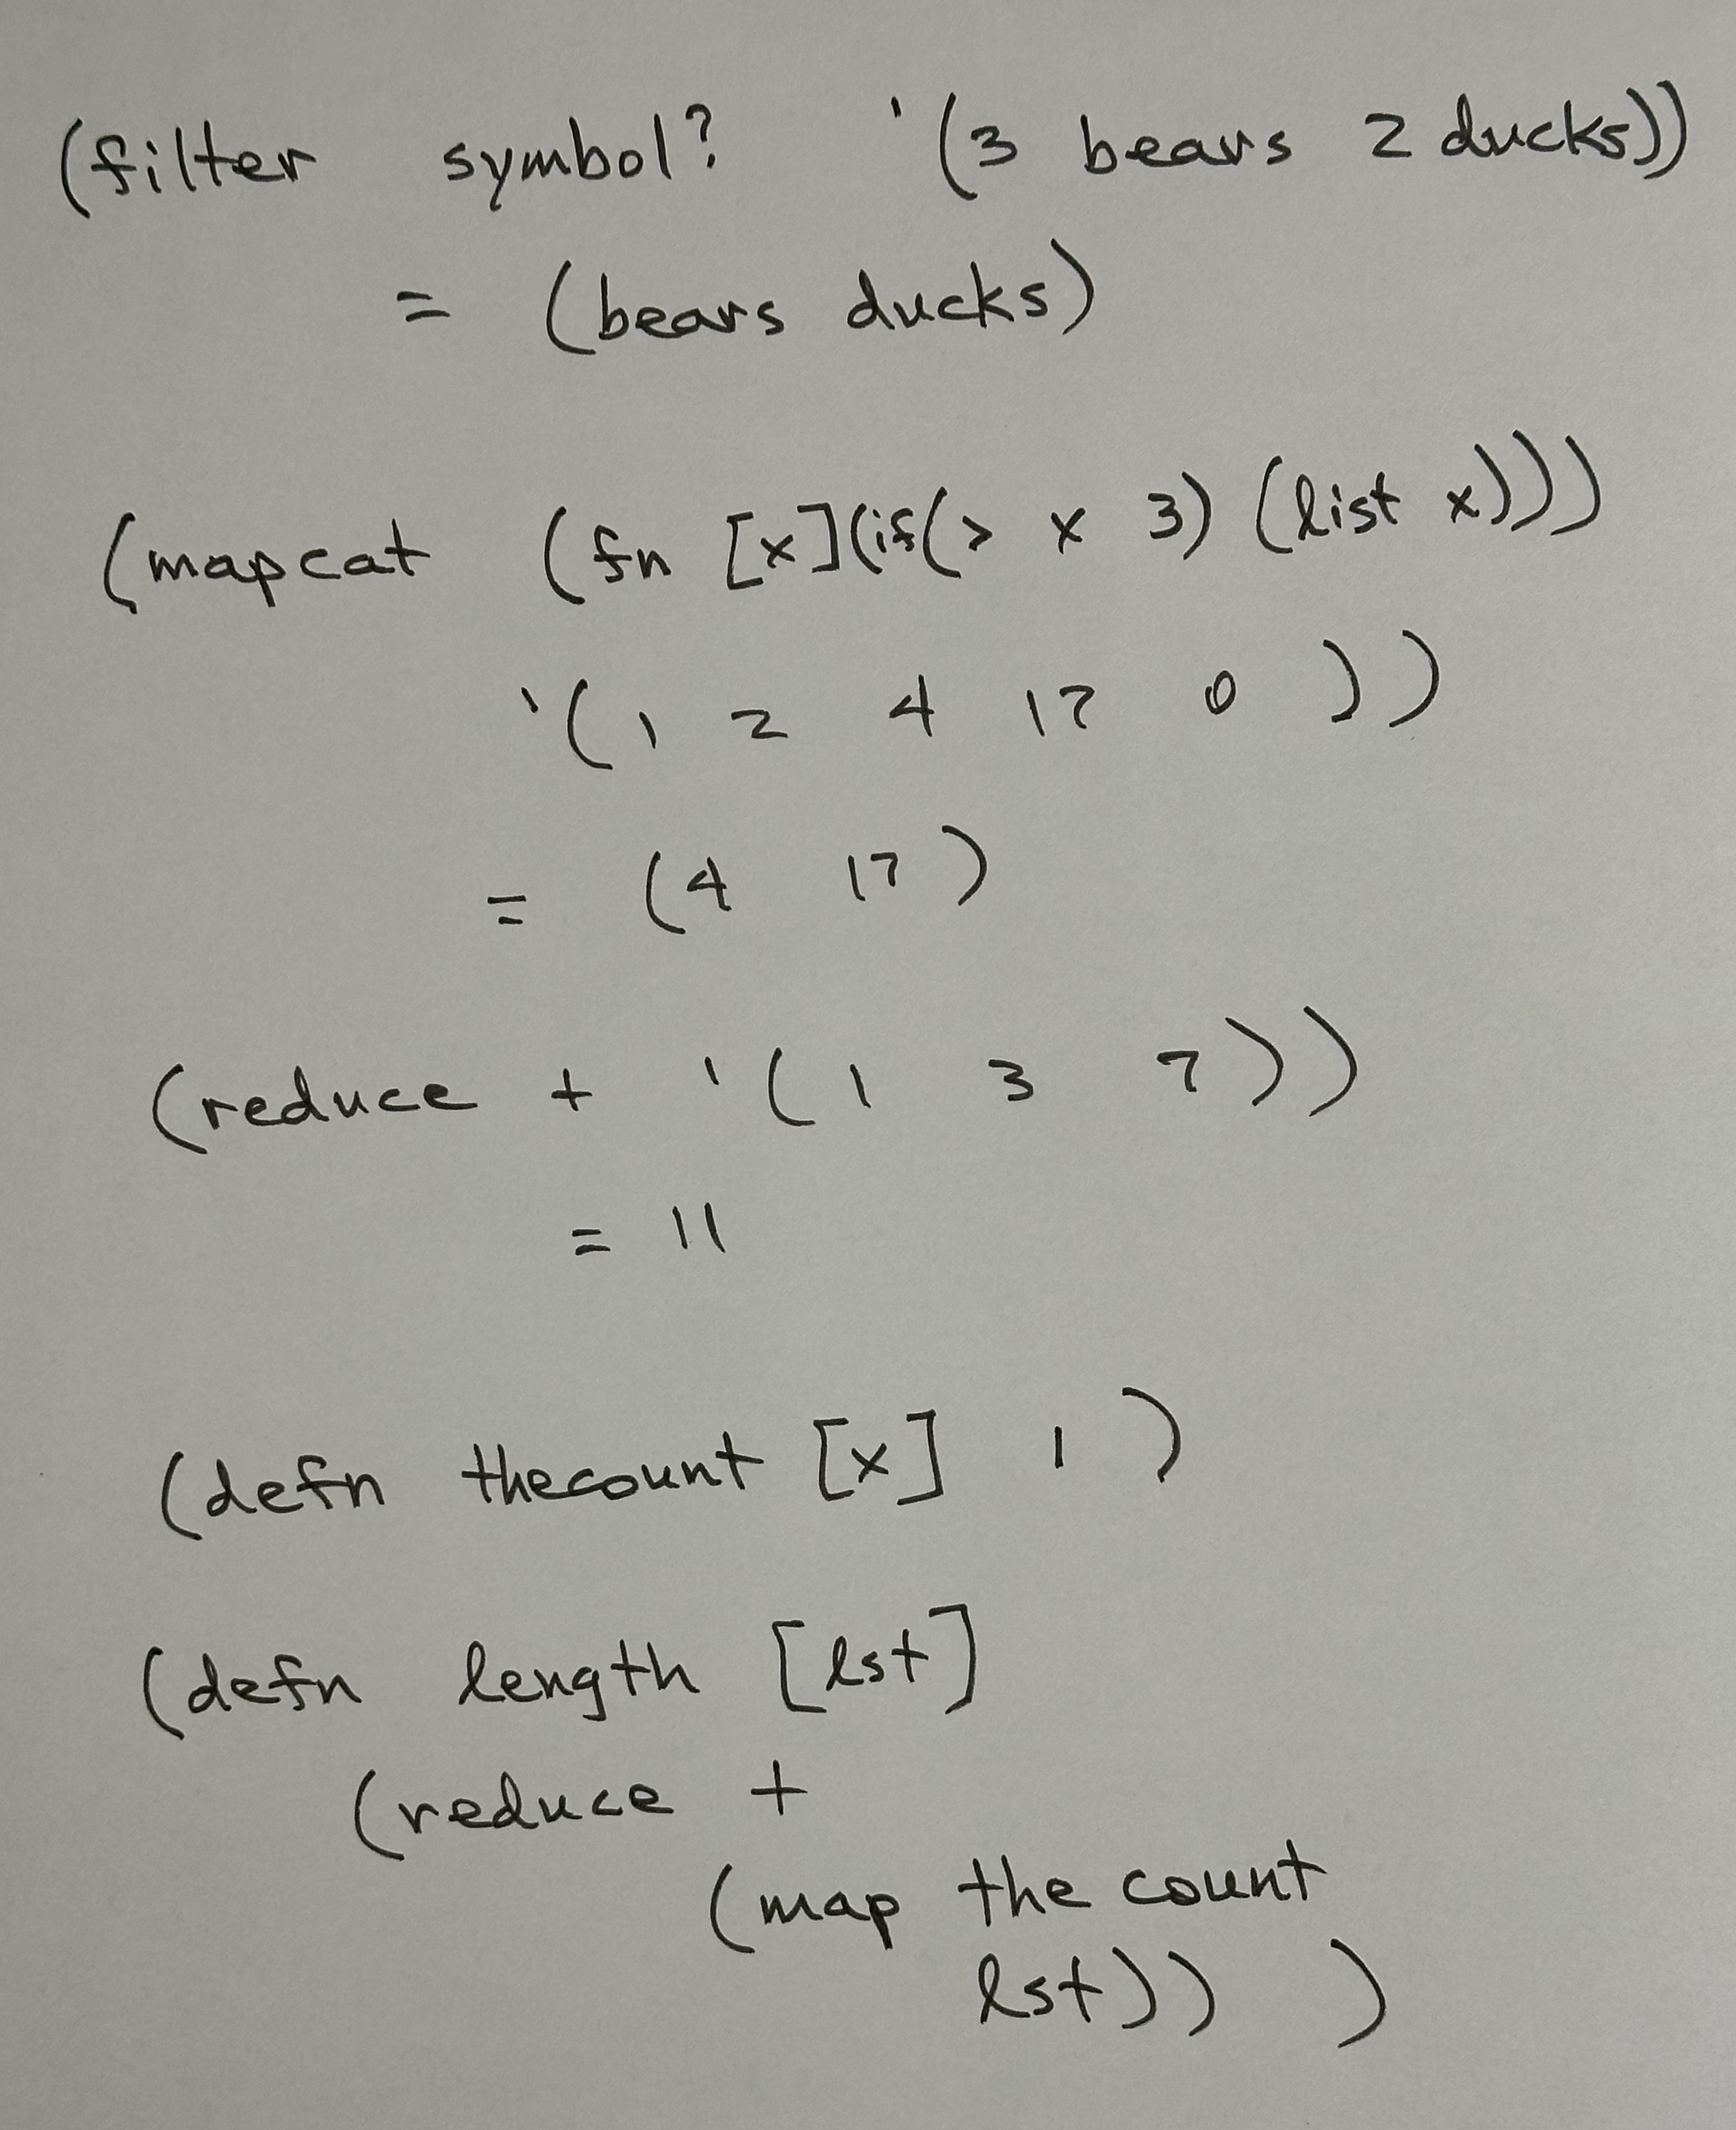 (filter symbol? '(3 bears 2 ducks))
= (bears ducks)
(mapcat (fn [x](if(> x 3) (list x)))
'(1 2 4 17 0 ))
= (4 17)
(reduce + '(1 3 7))
= 11
(defn thecount [x] 1 )
(defn length [lst]
(reduce +
(map the count
lst)) )